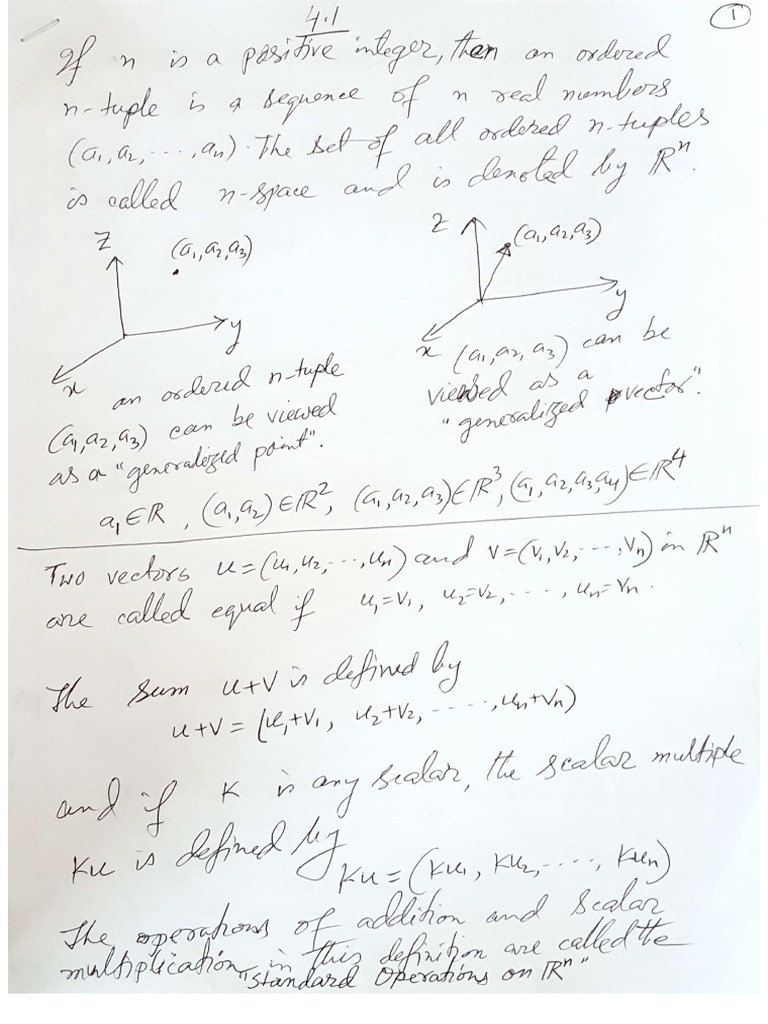 4.1
1
If n is a positive integer, then an ordered
n-tuple is a sequence of n real numbers
(a₁, a₂, ..., aₙ). The set of all ordered n-tuples
is called n-space and is denoted by ℝⁿ.
z
(a₁, a₂, a₃)
y
x
z
(a₁, a₂, a₃)
y
x
an ordered n-tuple
(a₁, a₂, a₃) can be viewed
as a "generalized point".
(a₁, a₂, a₃) can be
viewed as a
"generalized vector".
a₁ ∈ ℝ, (a₁, a₂) ∈ ℝ², (a₁, a₂, a₃) ∈ ℝ³, (a₁, a₂, a₃, a₄) ∈ ℝ⁴
Two vectors u = (u₁, u₂, ..., uₙ) and v = (v₁, v₂, ..., vₙ) in ℝⁿ
are called equal if u₁ = v₁, u₂ = v₂, ..., uₙ = vₙ.
The sum u+v is defined by
u+v = (u₁+v₁, u₂+v₂, ..., uₙ+vₙ)
and if k is any scalar, the scalar multiple
ku is defined by
ku = (ku₁, ku₂, ..., kuₙ)
The operations of addition and scalar
multiplication in this definition are called the
"standard operations on ℝⁿ"